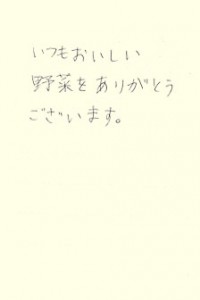 いつもおいしい
野菜をありがとう
ございます。